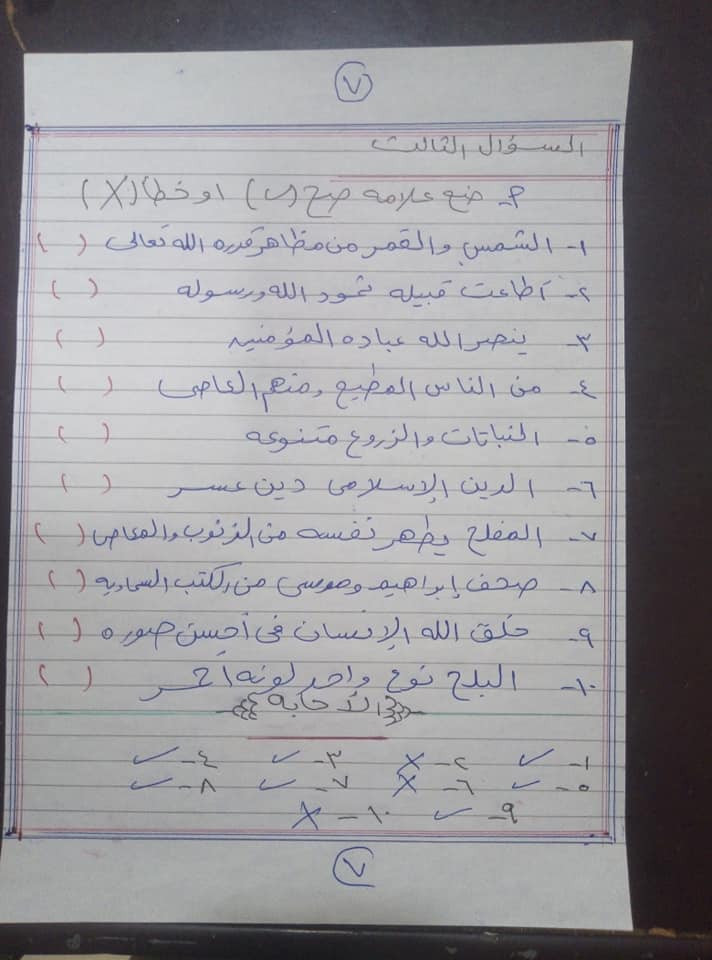 ٧
السؤال الثالث
أ- ضع علامه صح (✓) او خطأ (X)
١- الشمس والقمر من مظاهر قدره الله تعالى ( )
٢- أطاعت قبيله ثمود الله ورسوله ( )
٣- ينصر الله عباده المؤمنين ( )
٤- من الناس المطيع ومنهم العاصى ( )
٥- النباتات والزروع متنوعه ( )
٦- الدين الإسلامى دين عسر ( )
٧- المفلح يطهر نفسه من الذنوب والمعاصى ( )
٨- صحف إبراهيم وموسى من الكتب السماويه ( )
٩- خلق الله الإنسان فى أحسن صوره ( )
١٠- البلح نوع واحد لونه أحمر ( )
الأجابه
١- ✓ ٢- X ٣- ✓ ٤- ✓
٥- ✓ ٦- X ٧- ✓ ٨- ✓
٩- ✓ ١٠- X
٧